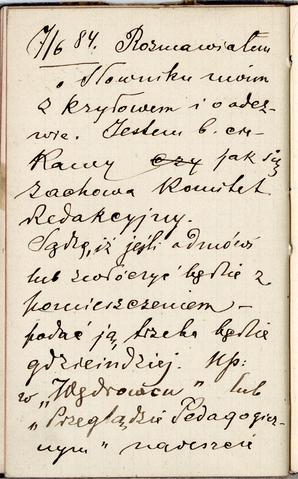 7/6 84. Rozmawiałem
o Słowniku moim
z Kryłowem i o odez-
wie. Jestem b. cie-
kawy czy jak się
zachowa Komitet
Redakcyjny.
Sądzę, iż jeśli odmówi
lub zwłóczyć będzie z
pomieszczeniem –
podać ją trzeba będzie
gdzieindziej. np:
w „Wędrowcu" lub
„Przeglądzie Pedagogicz-
nym" nareszcie